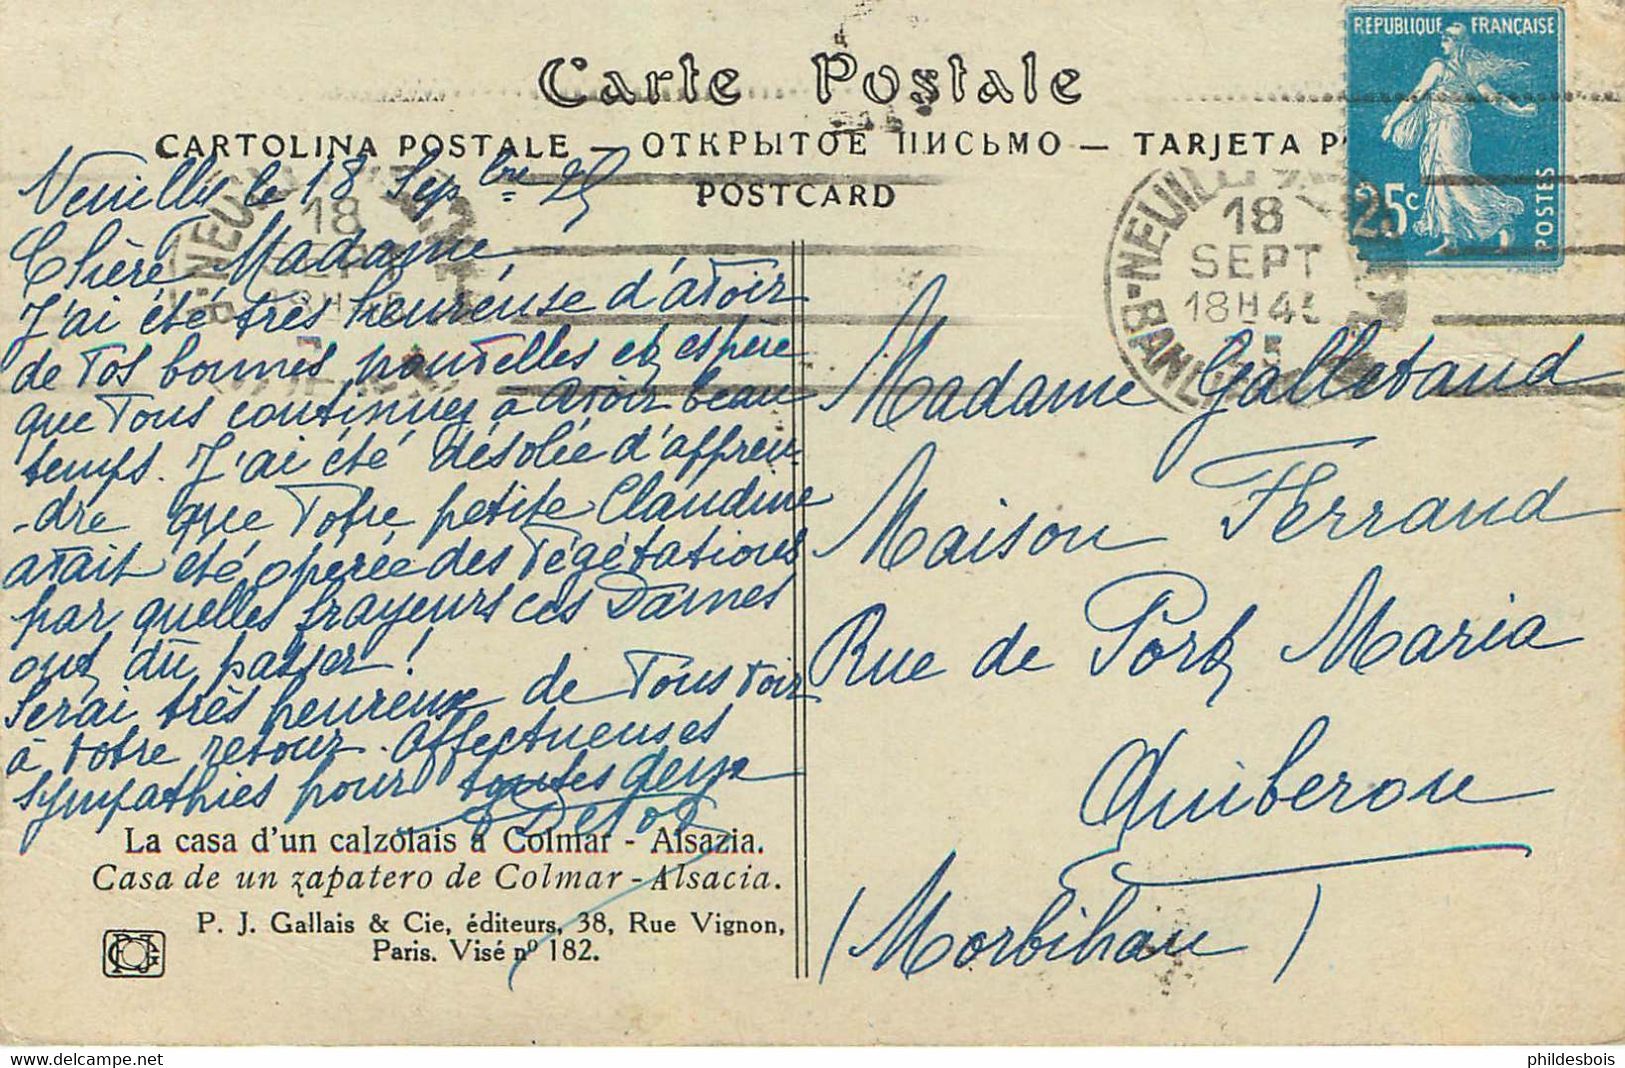 Carte Postale
CARTOLINA POSTALE – ОТКРЫТОЕ ПИСЬМО – TARJETA P
POSTCARD
REPUBLIQUE FRANÇAISE
25c
POSTES
NEUILLY
18
SEPT
18H45
BANL
Neuilly le 18 Sepbre 25
Chère Madame
J'ai été très heureuse d'avoir
de vos bonnes nouvelles et espère
que vous continuez à avoir beau
temps. J'ai été désolée d'appren
-dre que votre petite Claudine
avait été opérée des végétations
par quelles frayeurs ces Dames
ont dû passer!
Serai très heureuse de vous voir
à votre retour. Affectueuses
sympathies pour toutes deux
Madame Galletaud
Maison Ferrand
Rue de Port Maria
Quiberon
(Morbihan)
La casa d'un calzolais a Colmar - Alsazia.
Casa de un zapatero de Colmar - Alsacia.
P. J. Gallais & Cie, éditeurs, 38, Rue Vignon,
Paris. Visé nº 182.
delcampe.net
phildesbois